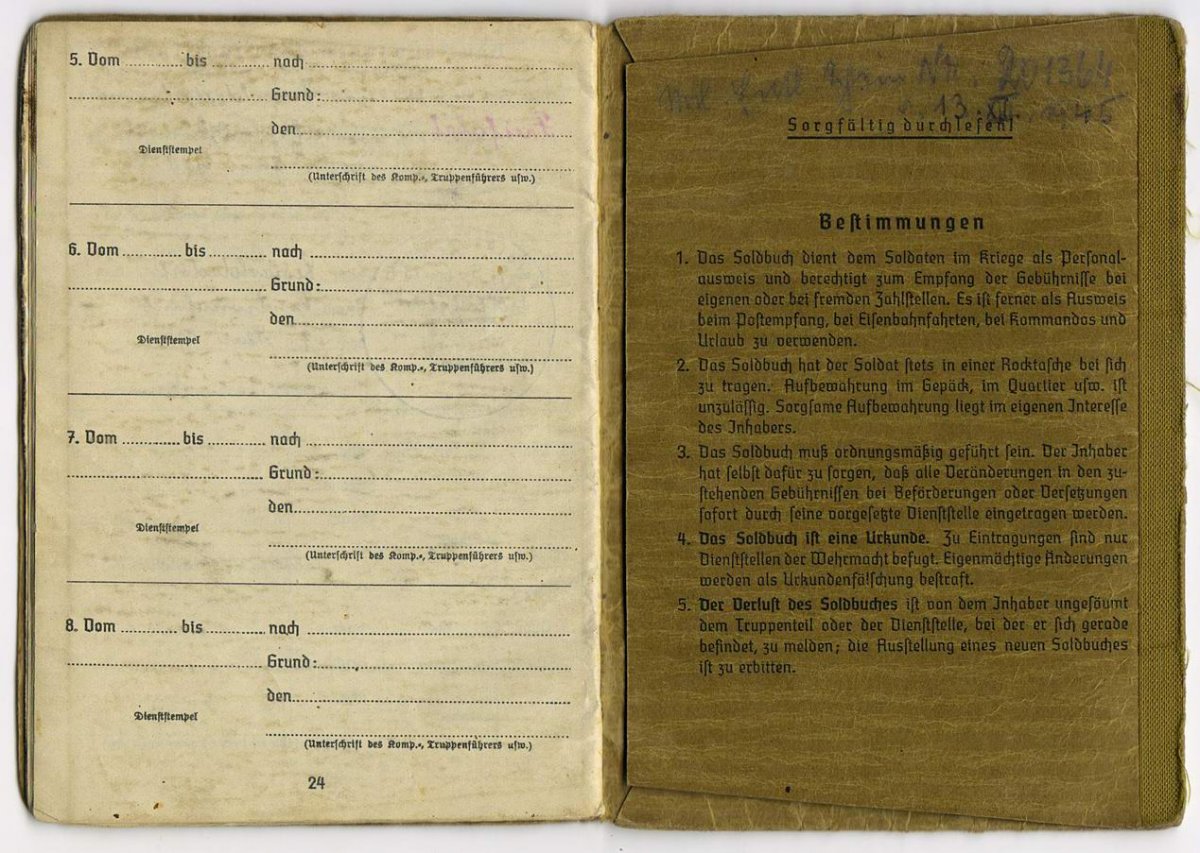 5. Vom ........ bis ........ nach ........
Grund: ........
den ........
Dienststempel
(Unterschrift des Komp.-, Truppenführers usw.)
6. Vom ........ bis ........ nach ........
Grund: ........
den ........
Dienststempel
(Unterschrift des Komp.-, Truppenführers usw.)
7. Vom ........ bis ........ nach ........
Grund: ........
den ........
Dienststempel
(Unterschrift des Komp.-, Truppenführers usw.)
8. Vom ........ bis ........ nach ........
Grund: ........
den ........
Dienststempel
(Unterschrift des Komp.-, Truppenführers usw.)
24
Nr. 201364
13. XII. 1945
Sorgfältig durchlesen!
Bestimmungen
1. Das Soldbuch dient dem Soldaten im Kriege als Personal-
ausweis und berechtigt zum Empfang der Gebührnisse bei
eigenen oder bei fremden Zahlstellen. Es ist ferner als Ausweis
beim Postempfang, bei Eisenbahnfahrten, bei Kommandos und
Urlaub zu verwenden.
2. Das Soldbuch hat der Soldat stets in einer Rocktasche bei sich
zu tragen. Aufbewahrung im Gepäck, im Quartier usw. ist
unzulässig. Sorgsame Aufbewahrung liegt im eigenen Interesse
des Inhabers.
3. Das Soldbuch muß ordnungsmäßig geführt sein. Der Inhaber
hat selbst dafür zu sorgen, daß alle Veränderungen in den zu-
stehenden Gebührnissen bei Beförderungen oder Versetzungen
sofort durch seine vorgesetzte Dienststelle eingetragen werden.
4. Das Soldbuch ist eine Urkunde. Zu Eintragungen sind nur
Dienststellen der Wehrmacht befugt. Eigenmächtige Änderungen
werden als Urkundenfälschung bestraft.
5. Der Verlust des Soldbuches ist von dem Inhaber ungesäumt
dem Truppenteil oder der Dienststelle, bei der er sich gerade
befindet, zu melden; die Ausstellung eines neuen Soldbuches
ist zu erbitten.